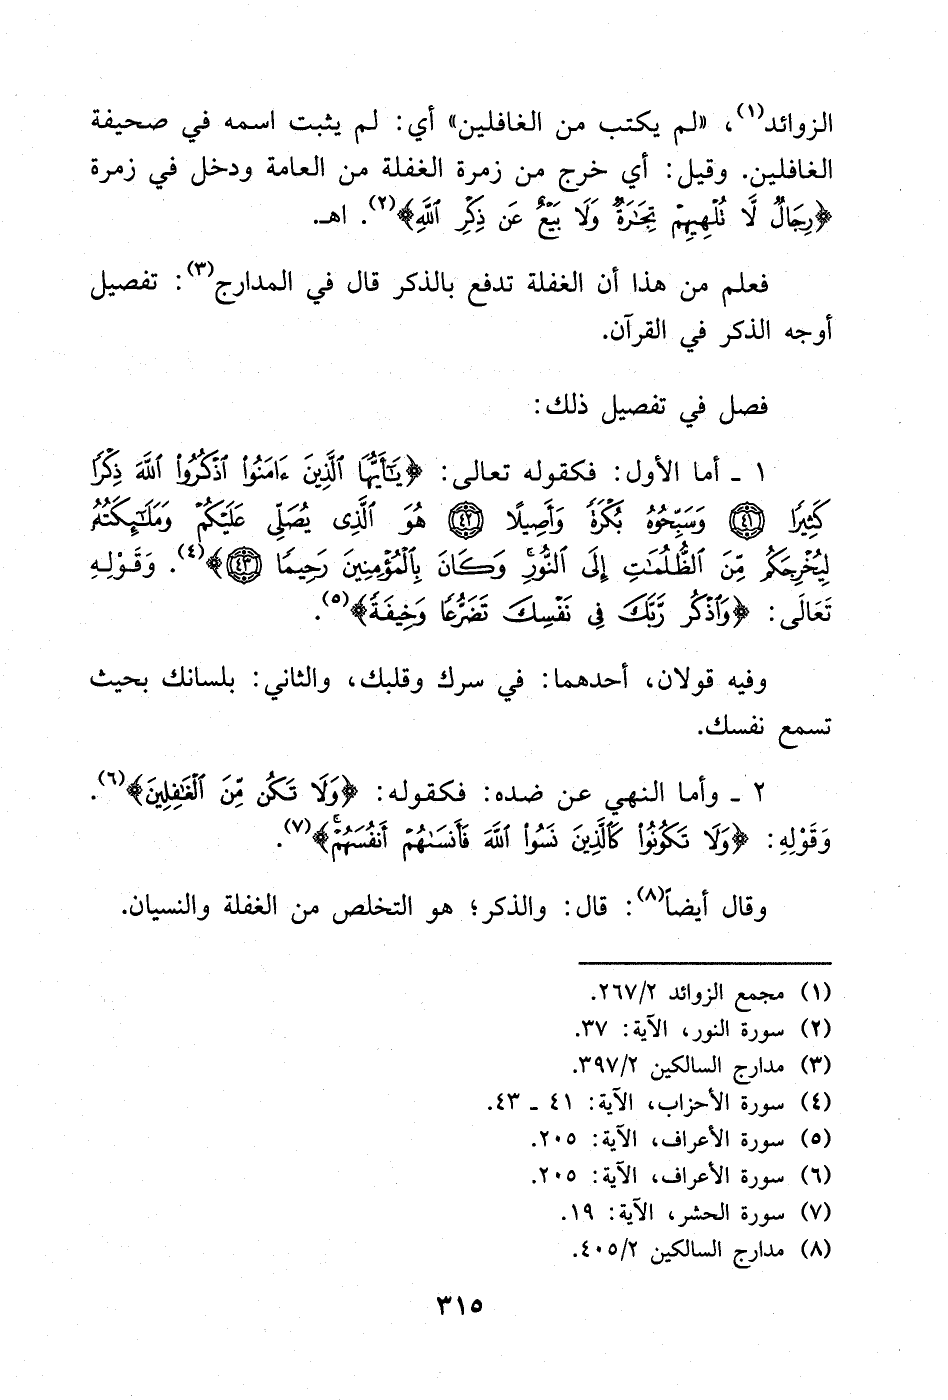 الزوائد(١)، «لم يكتب من الغافلين» أي: لم يثبت اسمه في صحيفة
الغافلين. وقيل: أي خرج من زمرة الغفلة من العامة ودخل في زمرة
﴿رِجَالٌ لَّا تُلْهِيهِمْ تِجَٰرَةٌ وَلَا بَيْعٌ عَن ذِكْرِ ٱللَّهِ﴾(٢). اهـ.
فعلم من هذا أن الغفلة تدفع بالذكر قال في المدارج(٣): تفصيل
أوجه الذكر في القرآن.
فصل في تفصيل ذلك:
١ ـ أما الأول: فكقوله تعالى: ﴿يَٰٓأَيُّهَا ٱلَّذِينَ ءَامَنُوا۟ ٱذْكُرُوا۟ ٱللَّهَ ذِكْرًا
كَثِيرًا ﴿٤١﴾ وَسَبِّحُوهُ بُكْرَةً وَأَصِيلًا ﴿٤٢﴾ هُوَ ٱلَّذِى يُصَلِّى عَلَيْكُمْ وَمَلَٰٓئِكَتُهُۥ
لِيُخْرِجَكُم مِّنَ ٱلظُّلُمَٰتِ إِلَى ٱلنُّورِ ۚ وَكَانَ بِٱلْمُؤْمِنِينَ رَحِيمًا ﴿٤٣﴾﴾(٤). وَقَوْلِهِ
تَعَالَى: ﴿وَٱذْكُر رَّبَّكَ فِى نَفْسِكَ تَضَرُّعًا وَخِيفَةً﴾(٥).
وفيه قولان، أحدهما: في سرك وقلبك، والثاني: بلسانك بحيث
تسمع نفسك.
٢ ـ وأما النهي عن ضده: فكقوله: ﴿وَلَا تَكُن مِّنَ ٱلْغَٰفِلِينَ﴾(٦).
وَقَوْلِهِ: ﴿وَلَا تَكُونُوا۟ كَٱلَّذِينَ نَسُوا۟ ٱللَّهَ فَأَنسَىٰهُمْ أَنفُسَهُمْ ۚ﴾(٧).
وقال أيضاً(٨): قال: والذكر؛ هو التخلص من الغفلة والنسيان.
(١) مجمع الزوائد ٢٦٧/٢.
(٢) سورة النور، الآية: ٣٧.
(٣) مدارج السالكين ٣٩٧/٢.
(٤) سورة الأحزاب، الآية: ٤١ ـ ٤٣.
(٥) سورة الأعراف، الآية: ٢٠٥.
(٦) سورة الأعراف، الآية: ٢٠٥.
(٧) سورة الحشر، الآية: ١٩.
(٨) مدارج السالكين ٤٠٥/٢.
٣١٥